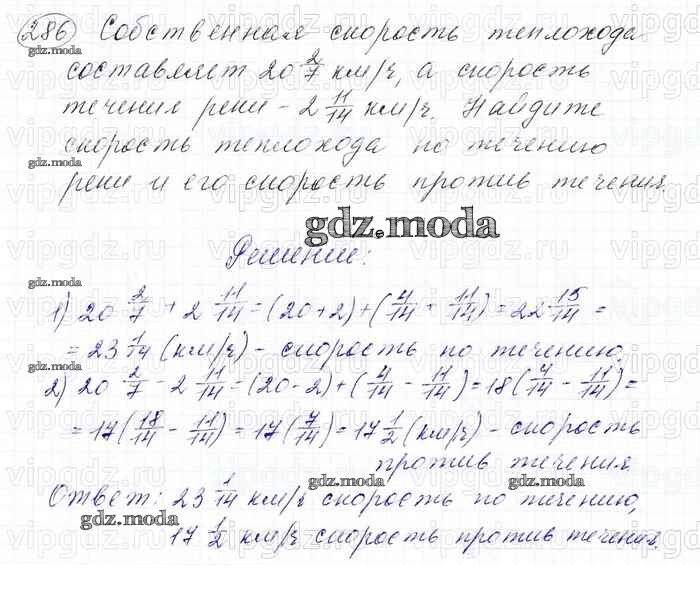 286 Собственная скорость теплохода
составляет 20 2/7 км/ч, а скорость
течения реки – 2 11/14 км/ч. Найдите
скорость теплохода по течению
реки и его скорость против течения.
gdz.moda
Решение:
1) 20 2/7 + 2 11/14 = (20+2)+(4/14 + 11/14) = 22 15/14 =
= 23 1/14 (км/ч) – скорость по течению.
2) 20 2/7 – 2 11/14 = (20-2)+(4/14 – 11/14) = 18(4/14 – 11/14) =
= 17(18/14 – 11/14) = 17(7/14) = 17 1/2 (км/ч) – скорость
против течения
Ответ: 23 1/14 км/ч скорость по течению,
17 1/2 км/ч скорость против течения.